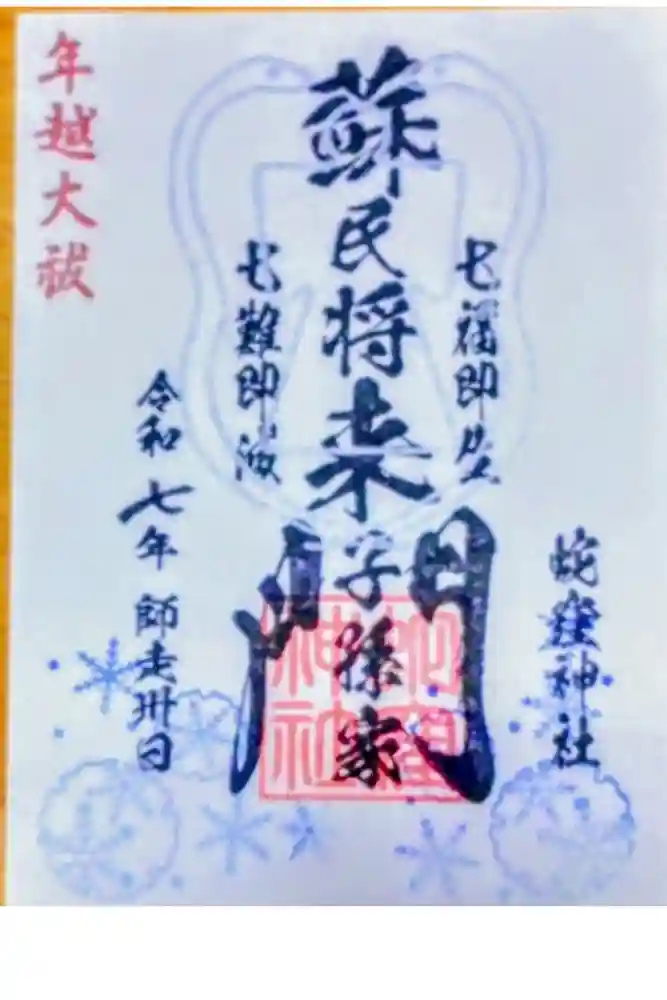 蛇窪神社
七福即生
蘇民将来子孫家門
七難即滅
令和七年 師走卅日
年越大祓
蛇窪神社